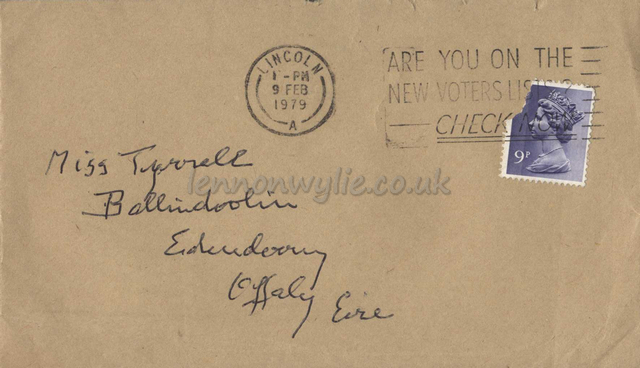 LINCOLN
1 - PM
9 FEB
1979
A
ARE YOU ON THE
NEW VOTERS LIST?
CHECK NOW
9P
Miss Tyrrell
Ballindoolin
Edenderry
Offaly
Eire
lennonwylie.co.uk